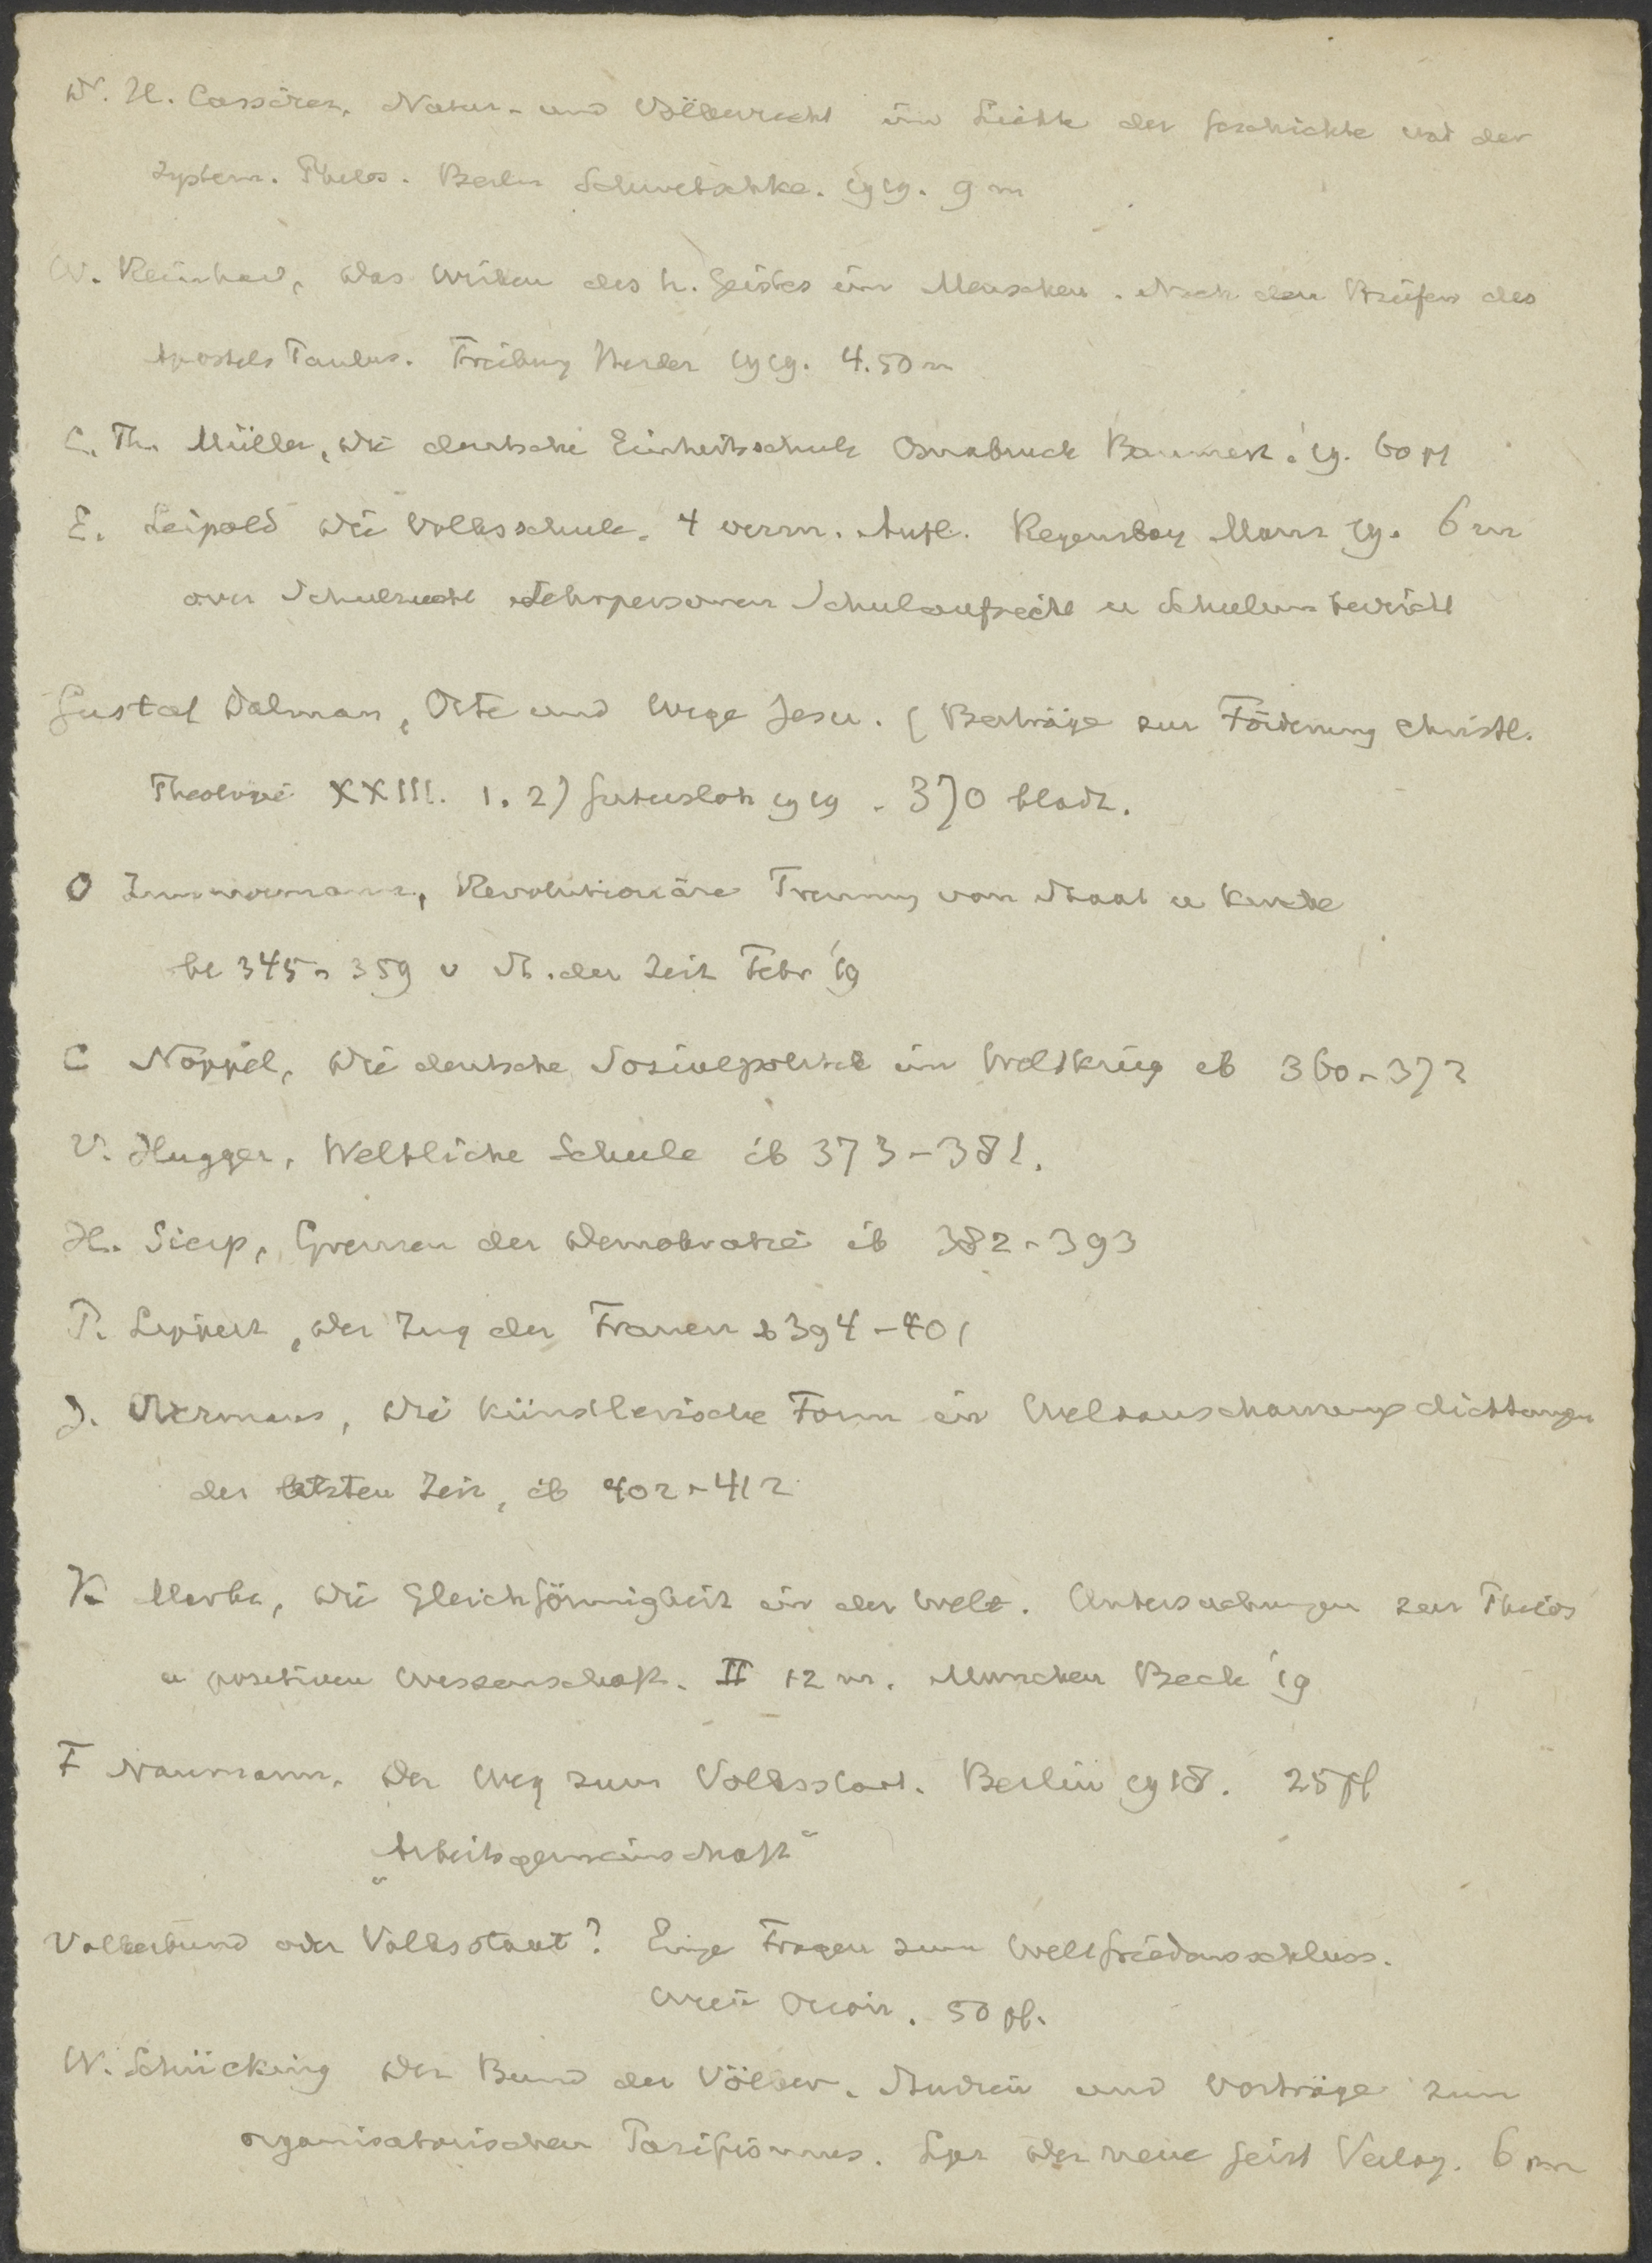 W. H. Cassirer, Natur- und Völkerrecht im Lichte der Geschichte und der
system. Philos. Berlin Schwetschke. 1919. 9 m
W. Reinhard, Das Wirken des h. Geistes im Menschen. Nach den Briefen des
Apostels Paulus. Freiburg Herder 1919. 4.50 m
C. Th. Müller, Die deutsche Einheitsschule Osnabruck '19. 60 pf
E. Leipold Die Volksschule. 4 verm. Aufl. Regensburg Manz 19. 6 m
over Schulrecht Lehrpersonen Schulaufsicht u
Gustaf Dalman, Orte und Wege Jesu. (Beiträge zur Förderung christl.
Theologie XXIII. 1. 2) Gutersloh 1919. 370 bladz.
O Zimmermann, Revolutionäre Trennung von Staat u Kirche
bl 345-359 v St. der Zeit Febr '19
C Noppel, Die deutsche Sozialpolitik im Weltkrieg ib 360-372
V. Hugger, Weltliche Schule ib 373-381.
H. Sierp, Grenzen der Demokratie ib 382-393
P. Lippert, Der Zug der Frauen ib 394-401
J. Overmans, Die künstlerische Form in Weltanschauungsdichtungen
der letzten Zeit, ib 402-412
K Marbe, Die Gleichförmigkeit in der Welt. Untersuchungen zur Philos
u positiven Wissenschaft. II 12 m. Munchen Beck '19
F Naumann, Der Weg zum Volksstaat. Berlin 1918. 25 pf
"Arbeitsgemeinschaft"
Volkerbund oder Volksstaat? Einige Fragen zum Weltfriedensschluss.
50 pf.
W. Schücking Der Bund der Völker. Studien und Vorträge zum
organisatorischen Pazifismus. Lpz Der neue Geist Verlag. 6 m